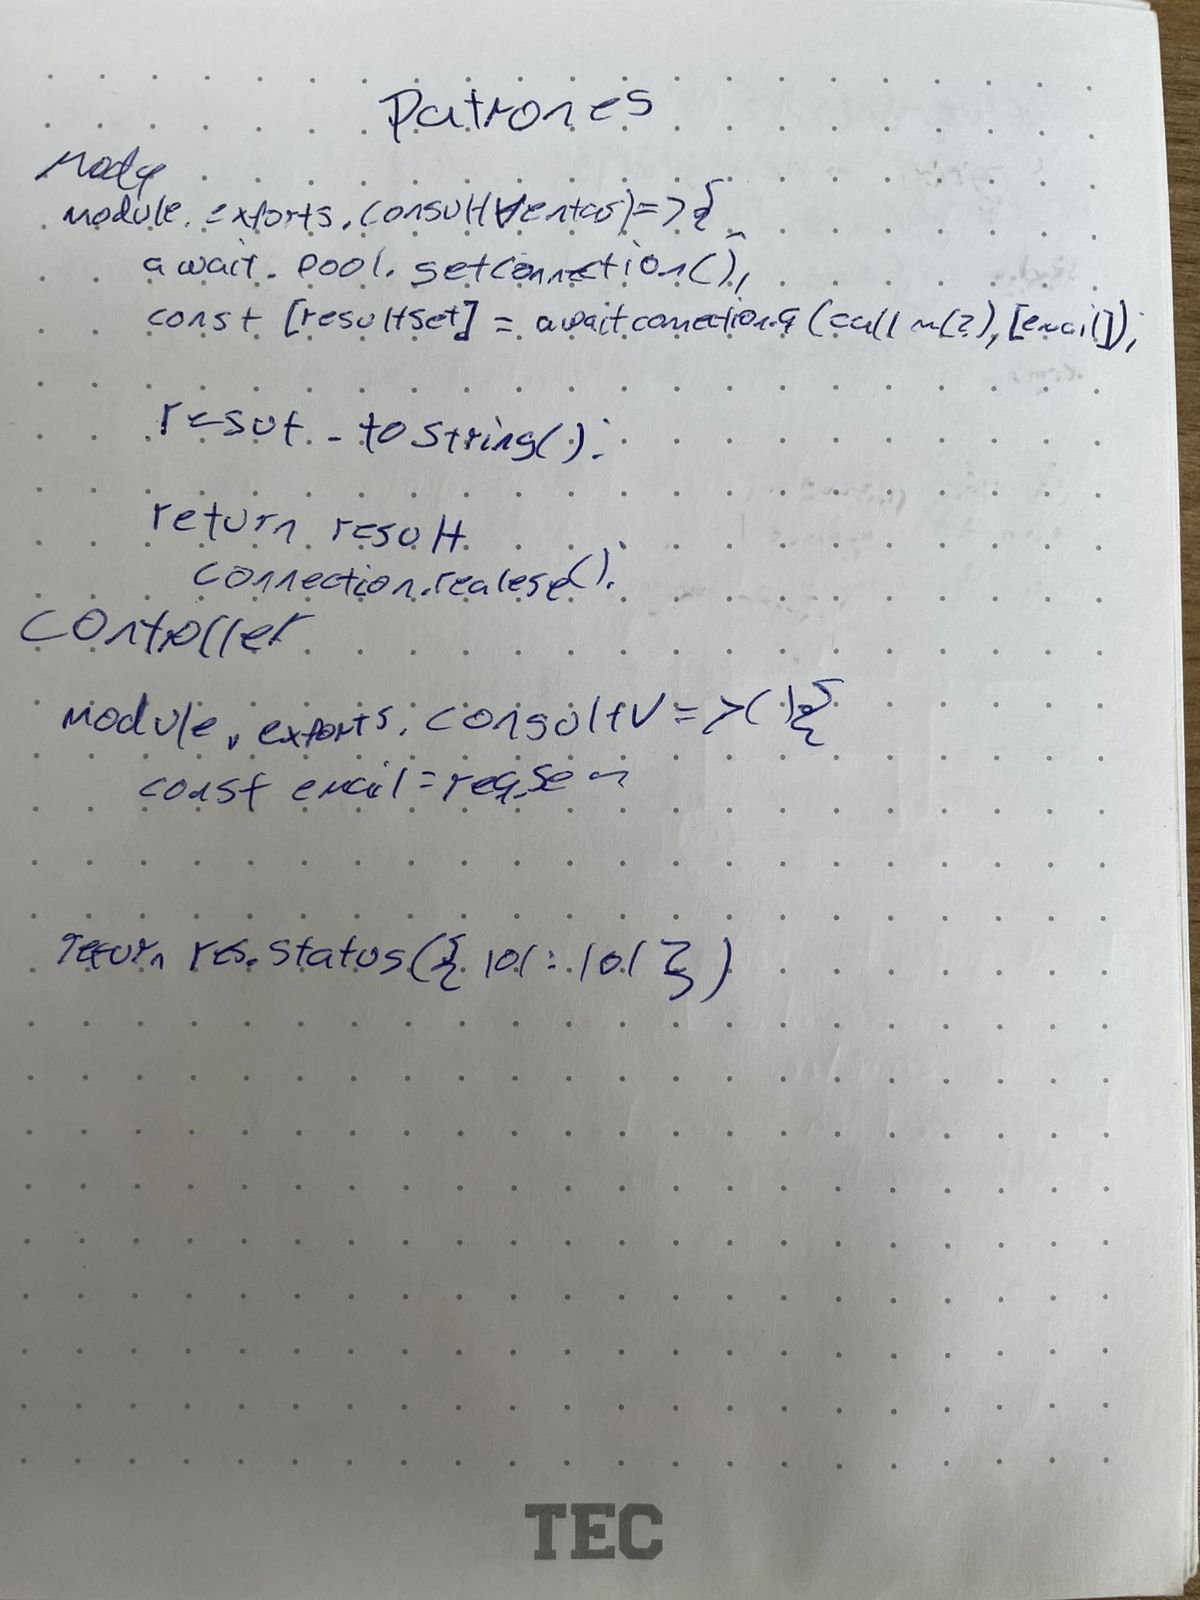 Patrones
Mode
module.exports.consultVentas)=>{
await. pool. getconnection();
const [resultset] = await conection.q (call n(?), [email]);
resut - toString();
return result
connection.realese();
Controller
module.exports.consultV=>(){
const email=req.se
return res.status({ lol: lol })
TEC